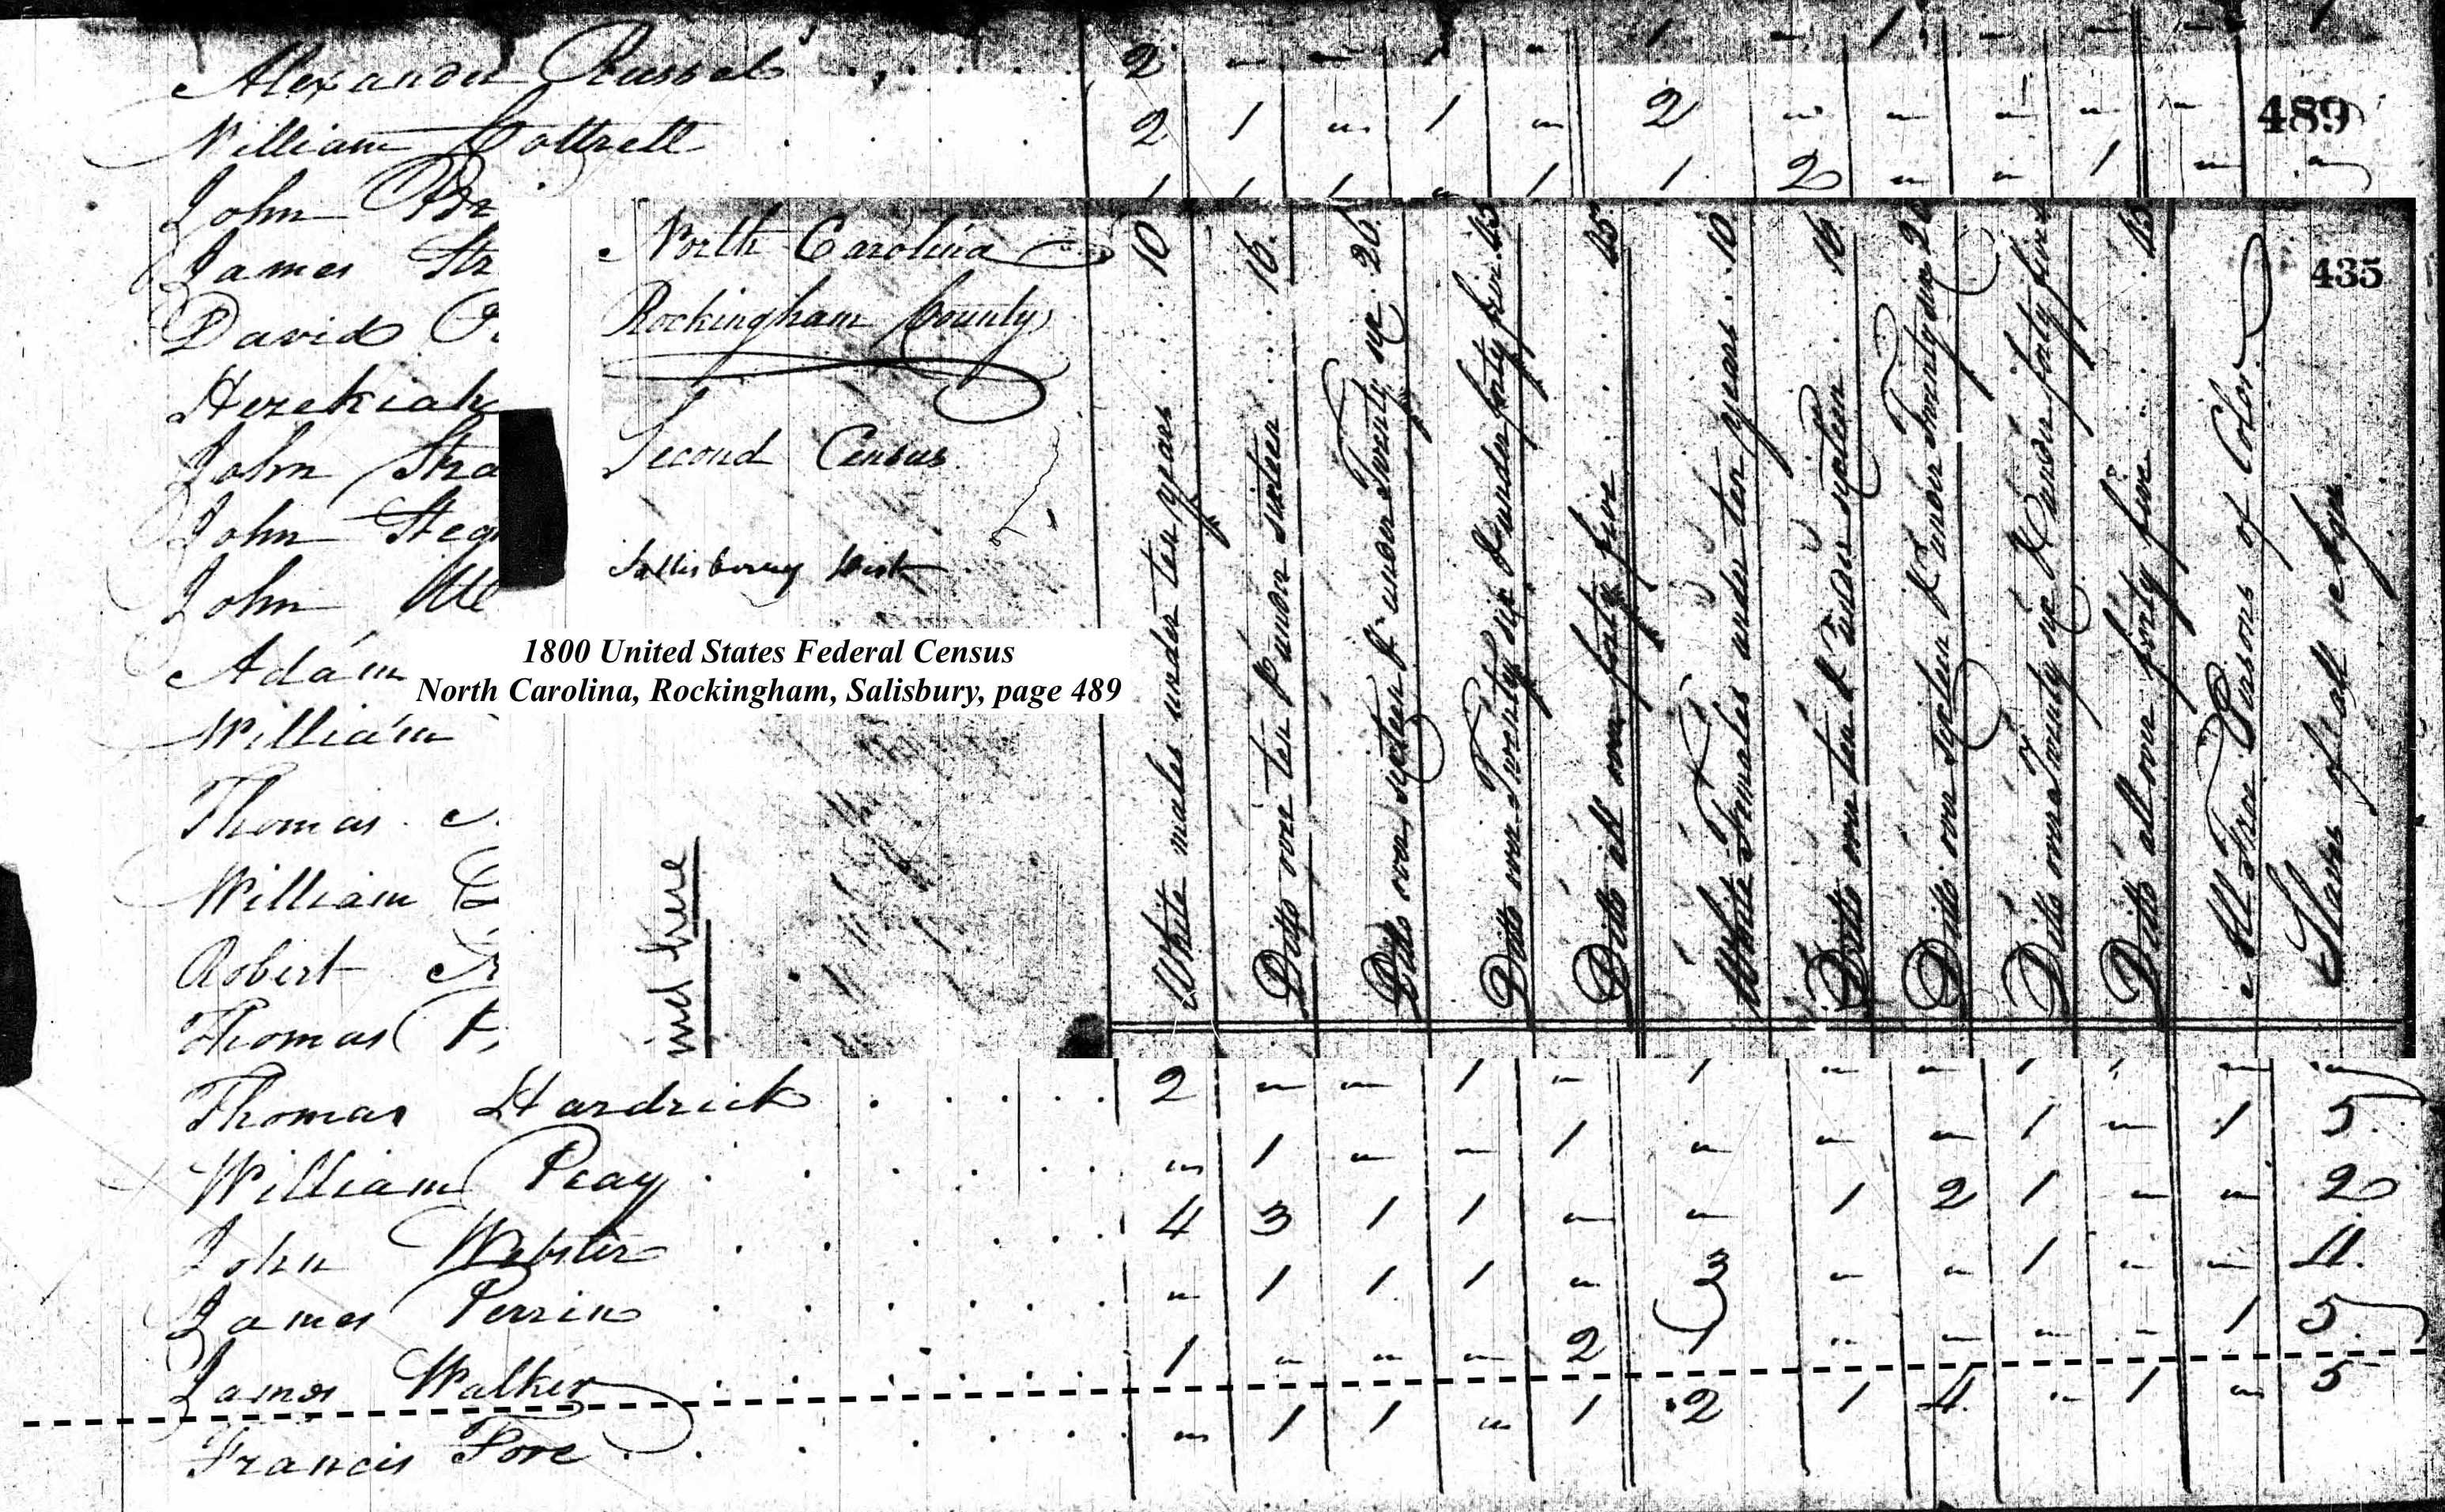 Alexander Russel . . . . . 2 " " 1 " 1 " 1 " " " 1
William Cottrell . . . . 2 1 " 1 " 2 " " " " "
489
John 1 1 1 " 1 1 2 " " 1 " "
James Str
David
Hezekiah
John Stra
John
John
Adam
William
Thomas
William
Robert
Thomas
North Carolina
Rockingham County
Second Census
Sallisbury Dist
ind here
435
White males under ten years . . . 10
Ditto over ten & under sixteen . . . 16.
Ditto over sixteen & under Twenty six . 26.
Ditto over Twenty six & under forty five . 45
Ditto all over forty five . . . . 45
White Females under ten years . . 10
Ditto over ten & under sixteen . . 16
Ditto over sixteen & under Twenty six 26
Ditto over Twenty six & under forty five
Ditto all over forty five . . . . 45
All Free Persons of Color
Slaves of all
1800 United States Federal Census
North Carolina, Rockingham, Salisbury, page 489
Thomas Hardrick . . . . . 2 " " 1 " 1 " " 1 " " "
William Peay . . . . . . " 1 " " 1 " " " 1 " 1 5
John Webster . . . . . . 4 3 1 1 " " 1 2 1 " " 2
James Perrin . . . . . . " 1 1 1 " 3 " " 1 " " 11.
James Walker . . . . . . 1 " " " 2 1 " " " " 1 5
Francis Fore . . . . . . " 1 1 " 1 2 1 4 " 1 " 5